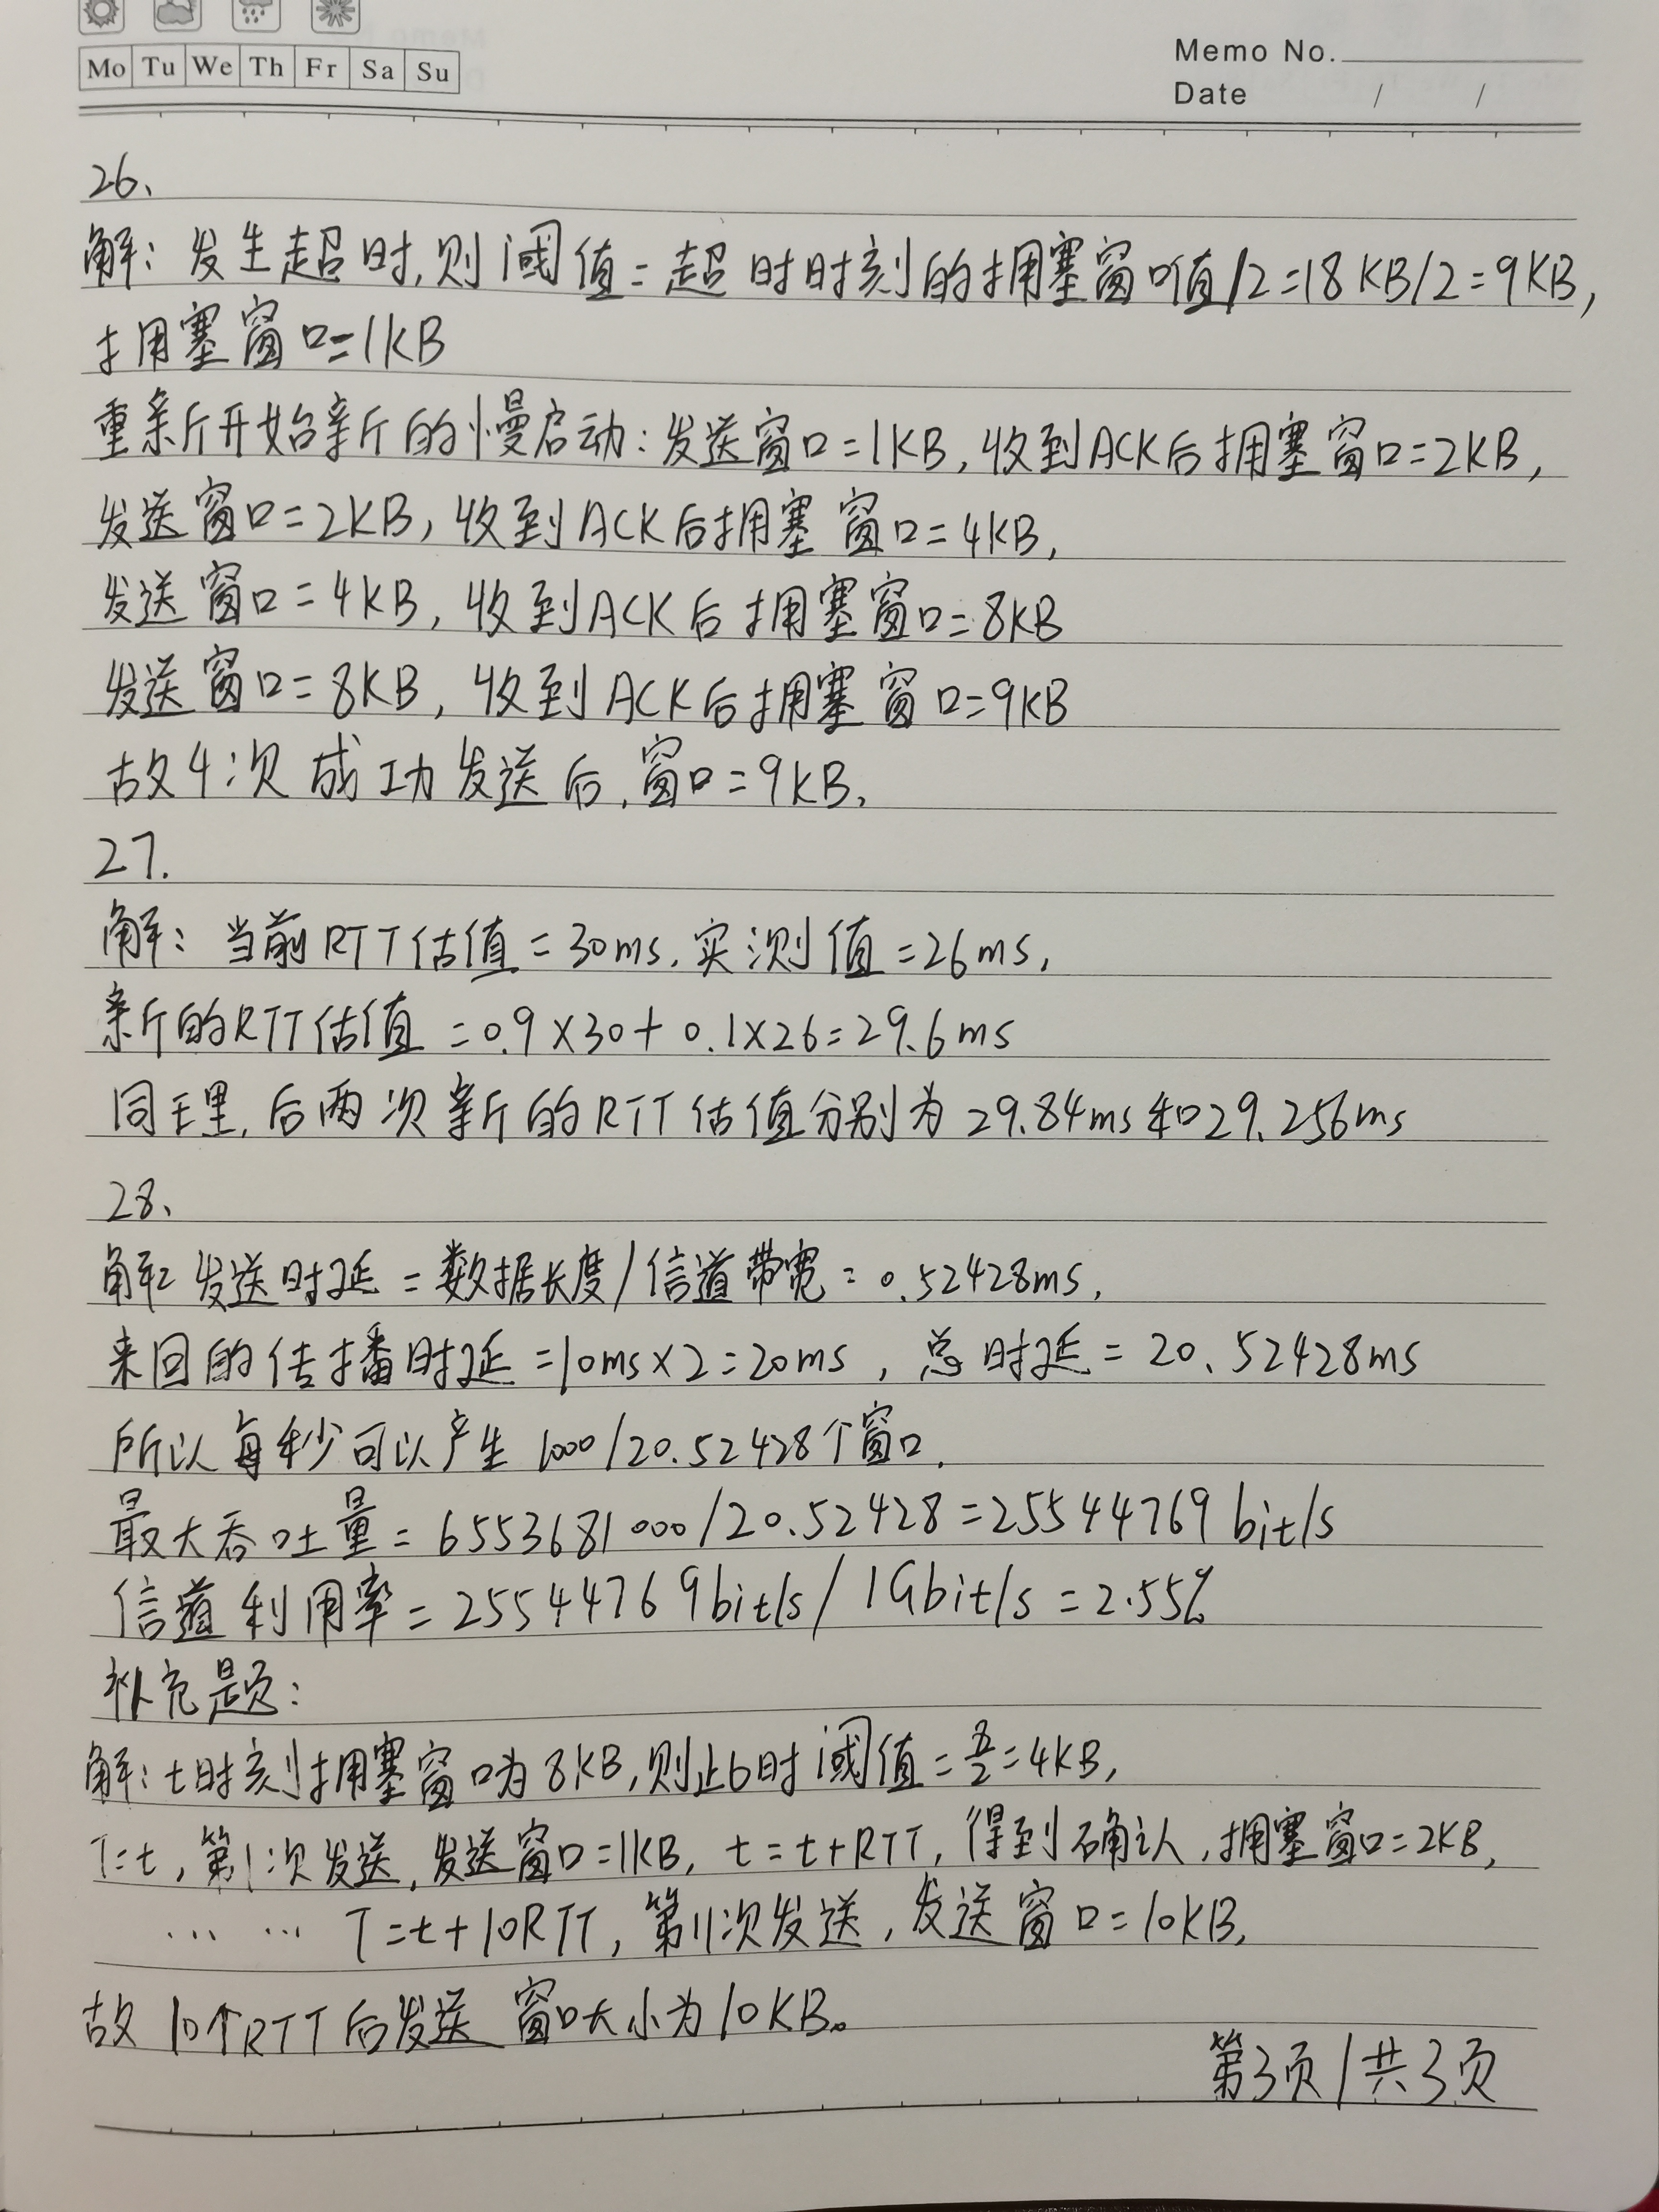 Mo Tu We Th Fr Sa Su
Memo No.
Date / /
26、
解：发生超时,则阈值=超时时刻的拥塞窗口值/2=18KB/2=9KB,
拥塞窗口=1KB
重新开始新的慢启动：发送窗口=1KB,收到ACK后拥塞窗口=2KB,
发送窗口=2KB,收到ACK后拥塞窗口=4KB,
发送窗口=4KB,收到ACK后拥塞窗口=8KB
发送窗口=8KB,收到ACK后拥塞窗口=9KB
故4次成功发送后,窗口=9KB,
27.
解：当前RTT估值=30ms,实测值=26ms,
新的RTT估值=0.9×30+0.1×26=29.6ms
同理,后两次新的RTT估值分别为29.84ms和29.256ms
28、
解：发送时延=数据长度/信道带宽=0.52428ms,
来回的传播时延=10ms×2=20ms,总时延=20.52428ms
所以每秒可以产生1000/20.52428个窗口.
最大吞吐量=6553681000/20.52428=25544769bit/s
信道利用率=25544769bit/s/1Gbit/s=2.55%
补充题：
解：t时刻拥塞窗口为8KB,则此时阈值=8/2=4KB,
T=t,第1次发送,发送窗口=1KB,t=t+RTT,得到确认,拥塞窗口=2KB,
… … T=t+10RTT,第11次发送,发送窗口=10KB,
故10个RTT后发送窗口大小为10KB。
第3页/共3页